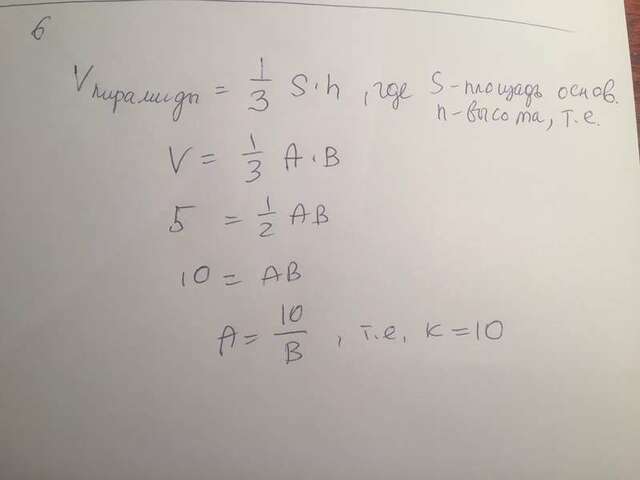 6
Vпирамиды = 1/3 S·h, где S-площадь основ.
h-высота, т.е.
V = 1/3 A·B
5 = 1/2 AB
10 = AB
A = 10/B, т.е. к=10